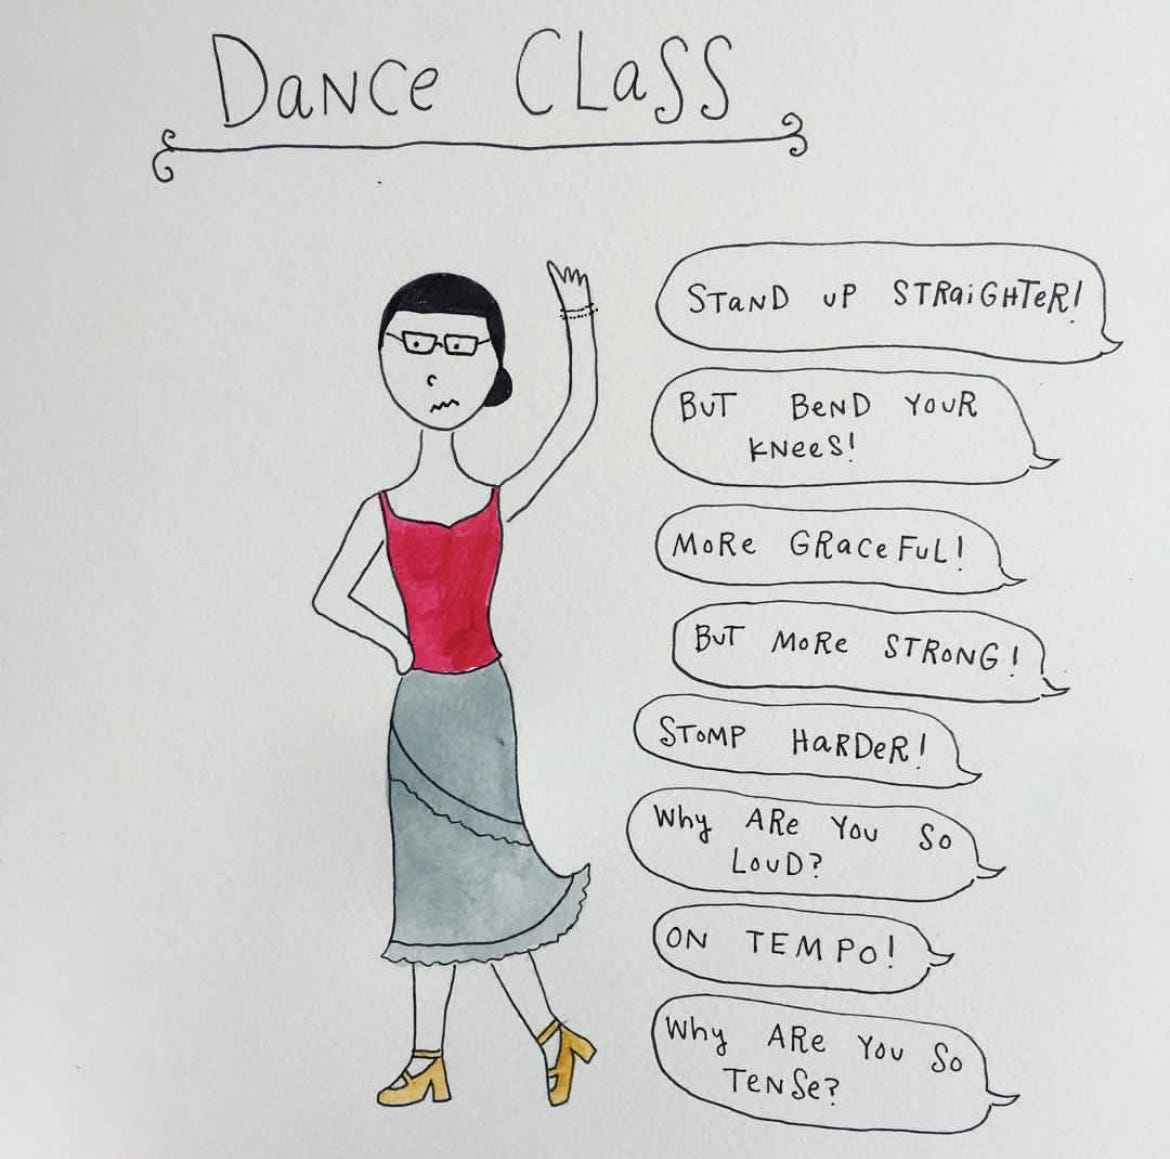 DaNCe CLaSS
STaND uP STRaiGHTeR!
BuT BeND YouR
KNeeS!
MoRe GRaCeFuL!
BuT MoRe STRoNG!
SToMP HaRDeR!
Why ARe You So
LouD?
ON TEMPo!
Why ARe You So
TeNSe?